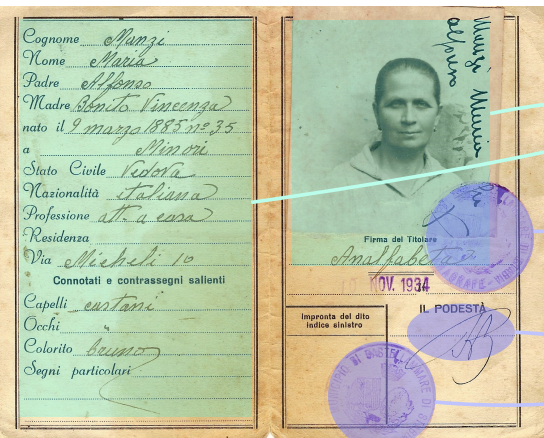 Cognome Manzi
Nome Maria
Padre Alfonso
Madre Bonito Vincenza
nato il 9 marzo 1885 nº 35
a Minori
Stato Civile Vedova
Nazionalità italiana
Professione att. a casa
Residenza
Via Micheli 10
Connotati e contrassegni salienti
Capelli castani
Occhi "
Colorito bruno
Segni particolari
Manzi Maria
Firma del Titolare
Analfabeta
NOV. 1934
Impronta del dito
indice sinistro
IL PODESTÀ
MARE DI